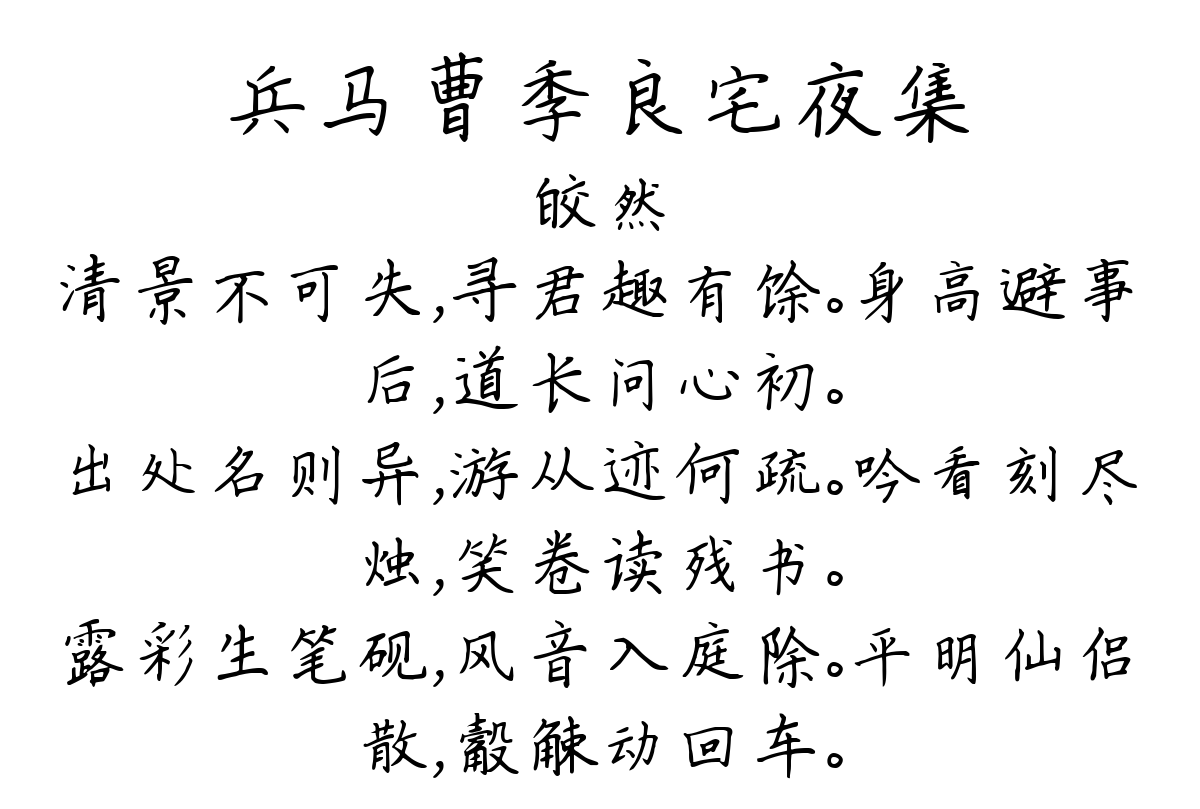 兵马曹季良宅夜集
皎然
清景不可失,寻君趣有馀。身高避事
后,道长问心初。
出处名则异,游从迹何疏。吟看刻尽
烛,笑卷读残书。
露彩生笔砚,风音入庭除。平明仙侣
散,觳觫动回车。